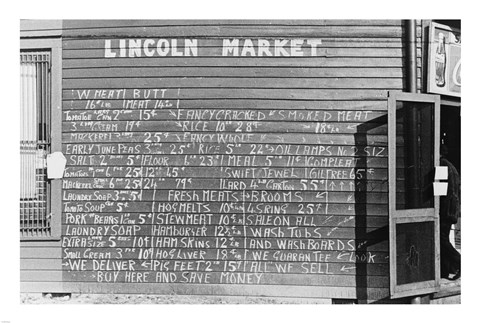 LINCOLN MARKET
W MEAT! BUTT
16¢ LB. MEAT 14¢
TOMATOE 15¢ FANCY CRACKED SMOKED MEAT
CREAM 19¢ RICE 10 28¢ 18¢
MACKEREL 25¢ FANCY WHOLE
EARLY JUNE PEAS 3 25¢ RICE 5 22¢ OIL LAMPS NO. 2 SIZ
SALT 2 5¢ FLOUR 6 23¢ MEAL 5 11¢ COMPLEAT
25¢ 12 45¢ SWIFT JEWEL GILTREE 65¢
MACKEREL 6 25¢ 24 79¢ LARD CARTON 55¢
LAUNDRY SOAP 3 5¢ FRESH MEATS BROOMS
SOUP 5¢ HOG MELTS 10¢ 4 STRING 25¢
PORK & BEANS 1 CAN 5¢ STEW MEAT 10¢ LB SALE ON ALL
LAUNDRY SOAP HAMBURGER 12½ WASH TUBS
EXTRA SIZE 5 10¢ HAM SKINS 12½ AND WASH BOARDS
SMALL CREAM 3 10¢ HOG LIVER 18¢ WE GUARANTEE LOOK
WE DELIVER PIG FEET 2 15¢ ALL WE SELL
BUY HERE AND SAVE MONEY